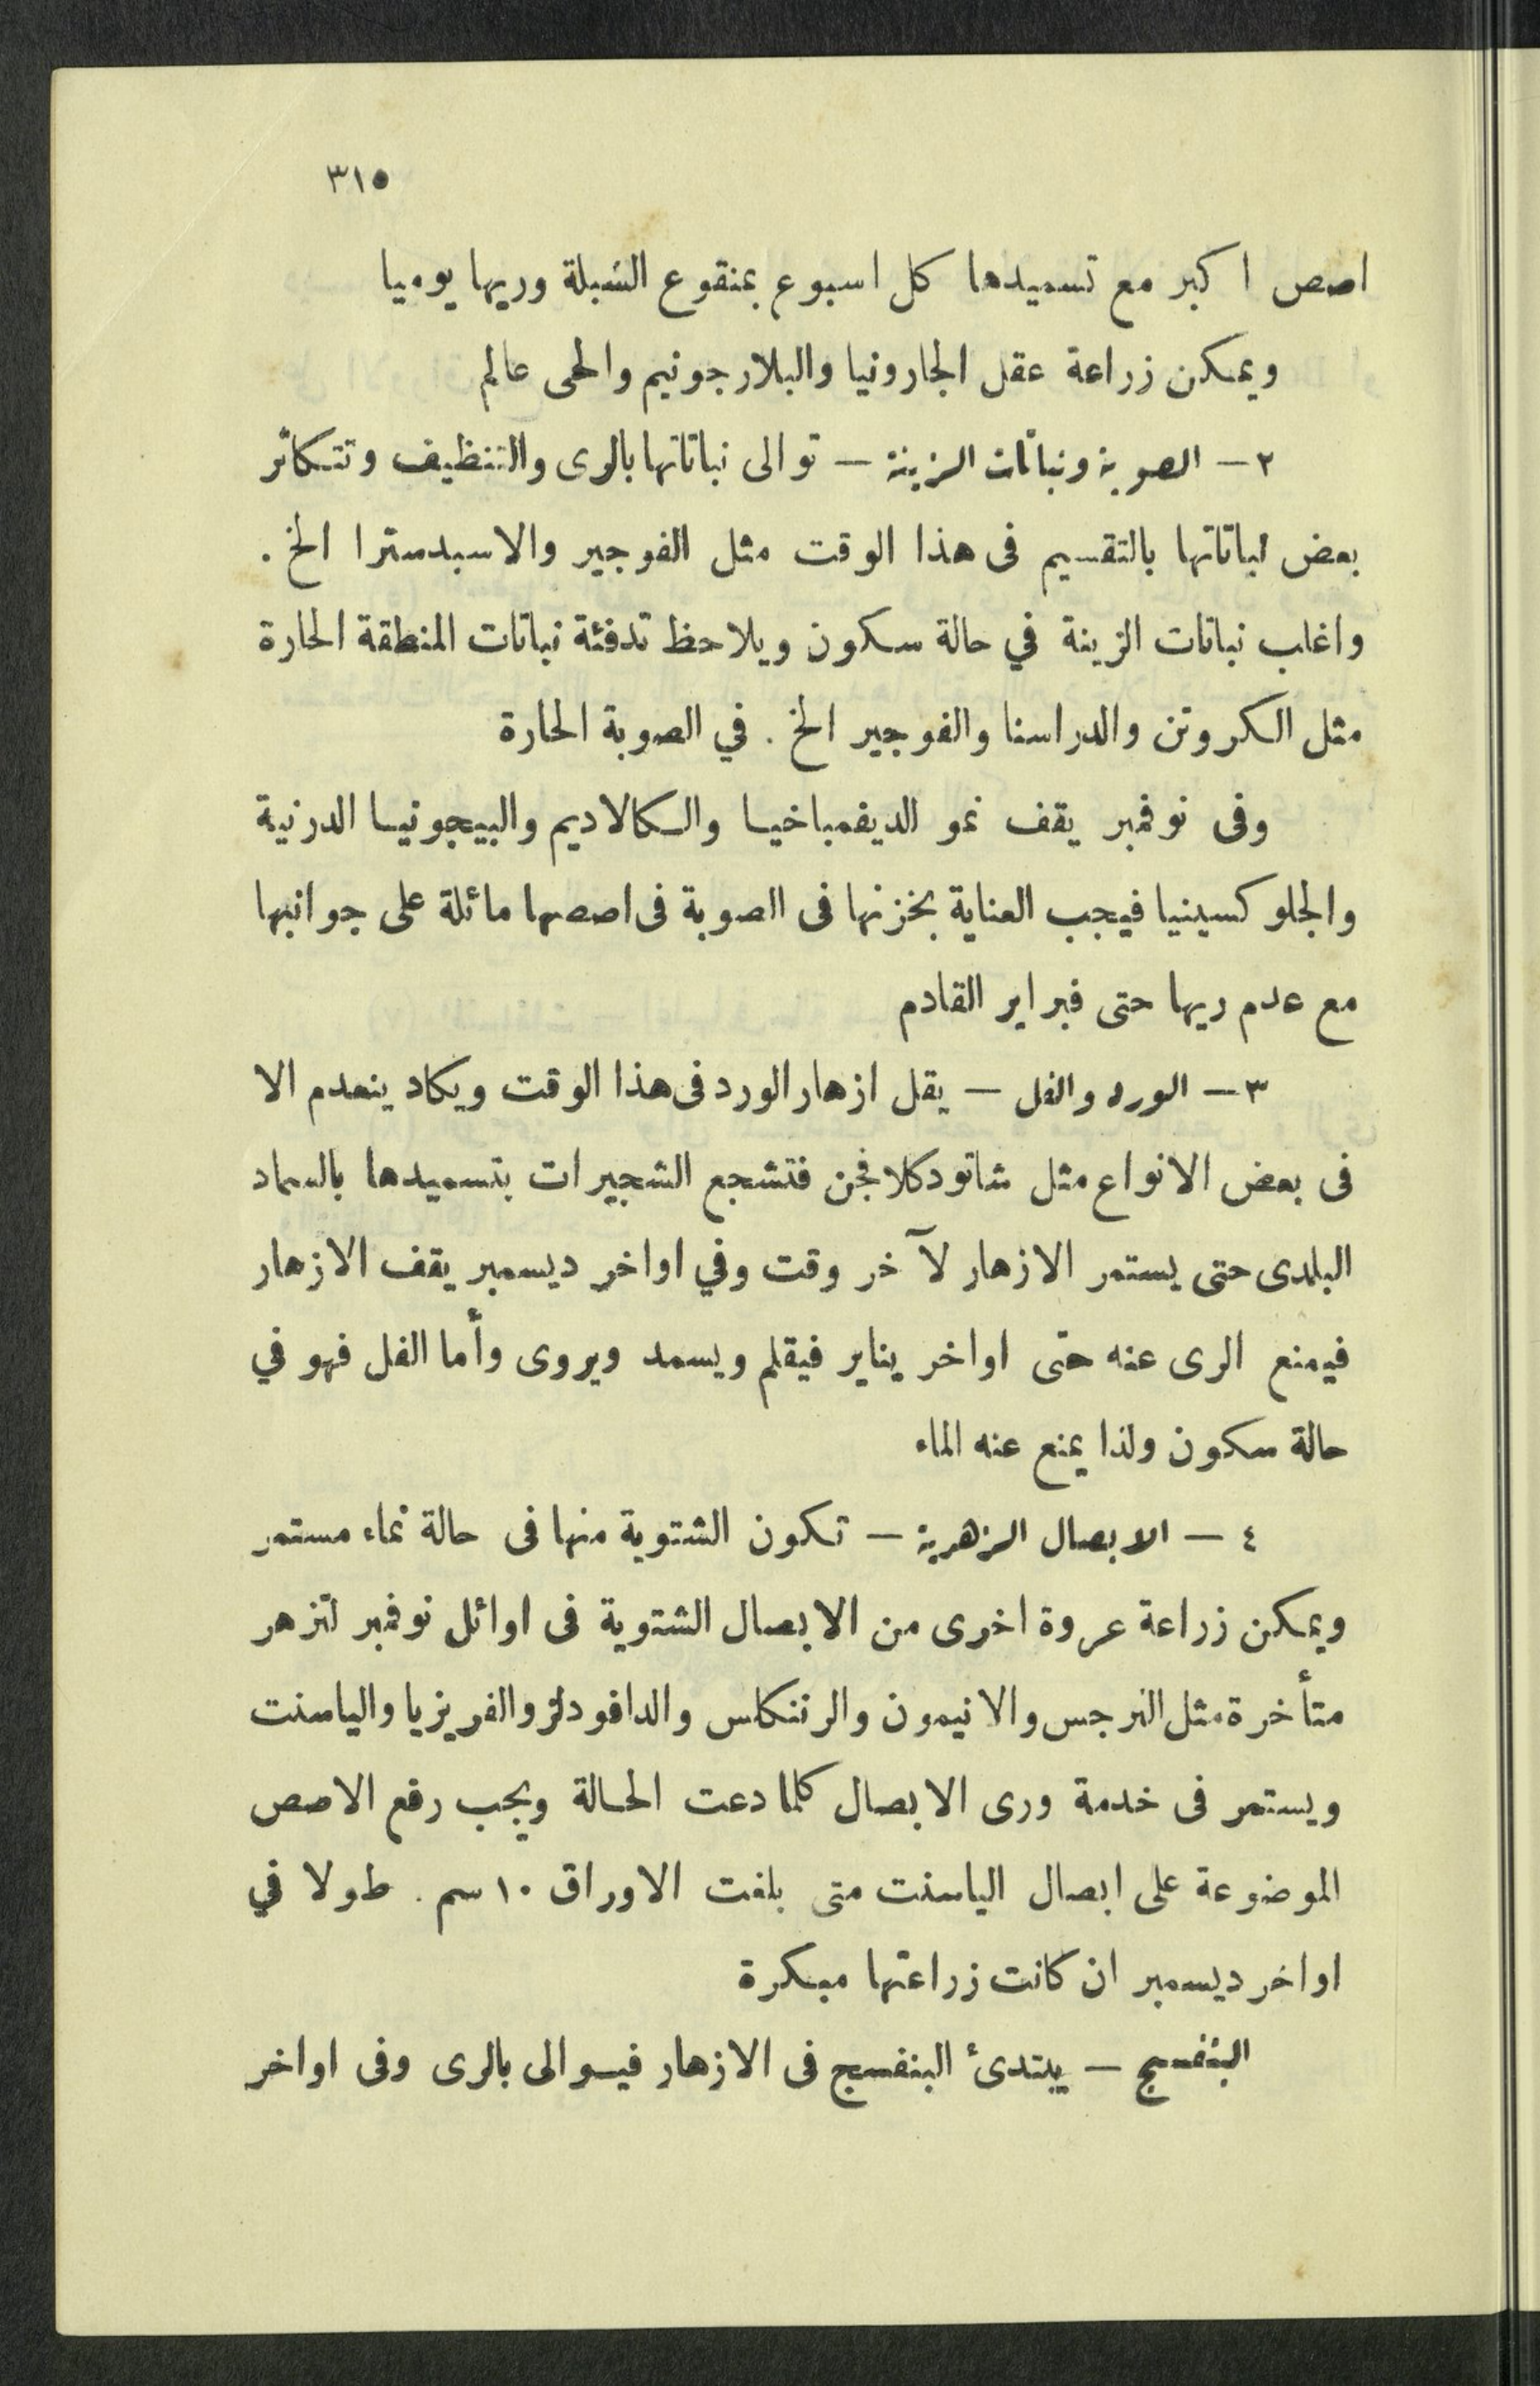 ٣١٥
اصص اكبر مع تسميدها كل اسبوع بمنقوع السبلة وريها يوميا
ويمكن زراعة عقل الجارونيا والبلارجونيم والحى عالم
٢ — الصوبة ونباتات الزينة — توالى نباتاتها بالرى والتنظيف وتتكاثر
بعض نباتاتها بالتقسيم فى هذا الوقت مثل الفوجير والاسبدسترا الخ .
واغلب نباتات الزينة في حالة سكون ويلاحظ تدفئة نباتات المنطقة الحارة
مثل الكروتن والدراسنا والفوجير الخ . في الصوبة الحارة
وفى نوفمبر يقف نمو الديفمباخيا والكالاديم والبيجونيا الدرنية
والجلوكسينيا فيجب العناية بخزنها فى الصوبة فى اصصها مائلة على جوانبها
مع عدم ريها حتى فبراير القادم
٣ — الورد والفل — يقل ازهار الورد فى هذا الوقت ويكاد ينعدم الا
فى بعض الانواع مثل شاتودكلافجن فتشجع الشجيرات بتسميدها بالسماد
البلدى حتى يستمر الازهار لآخر وقت وفي اواخر ديسمبر يقف الازهار
فيمنع الرى عنه حتى اواخر يناير فيقلم ويسمد ويروى وأما الفل فهو في
حالة سكون ولذا يمنع عنه الماء
٤ — الابصال الزهرية — تكون الشتوية منها فى حالة نماء مستمر
ويمكن زراعة عروة اخرى من الابصال الشتوية فى اوائل نوفمبر لتزهر
متأخرة مثل النرجس والانيمون والرننكلس والدافودلز والفريزيا والياسنت
ويستمر فى خدمة ورى الابصال كلما دعت الحالة ويجب رفع الاصص
الموضوعة على ابصال الياسنت متى بلغت الاوراق ١٠ سم . طولا في
اواخر ديسمبر ان كانت زراعتها مبكرة
البنفسج — يبتدئ البنفسج فى الازهار فيوالى بالرى وفى اواخر